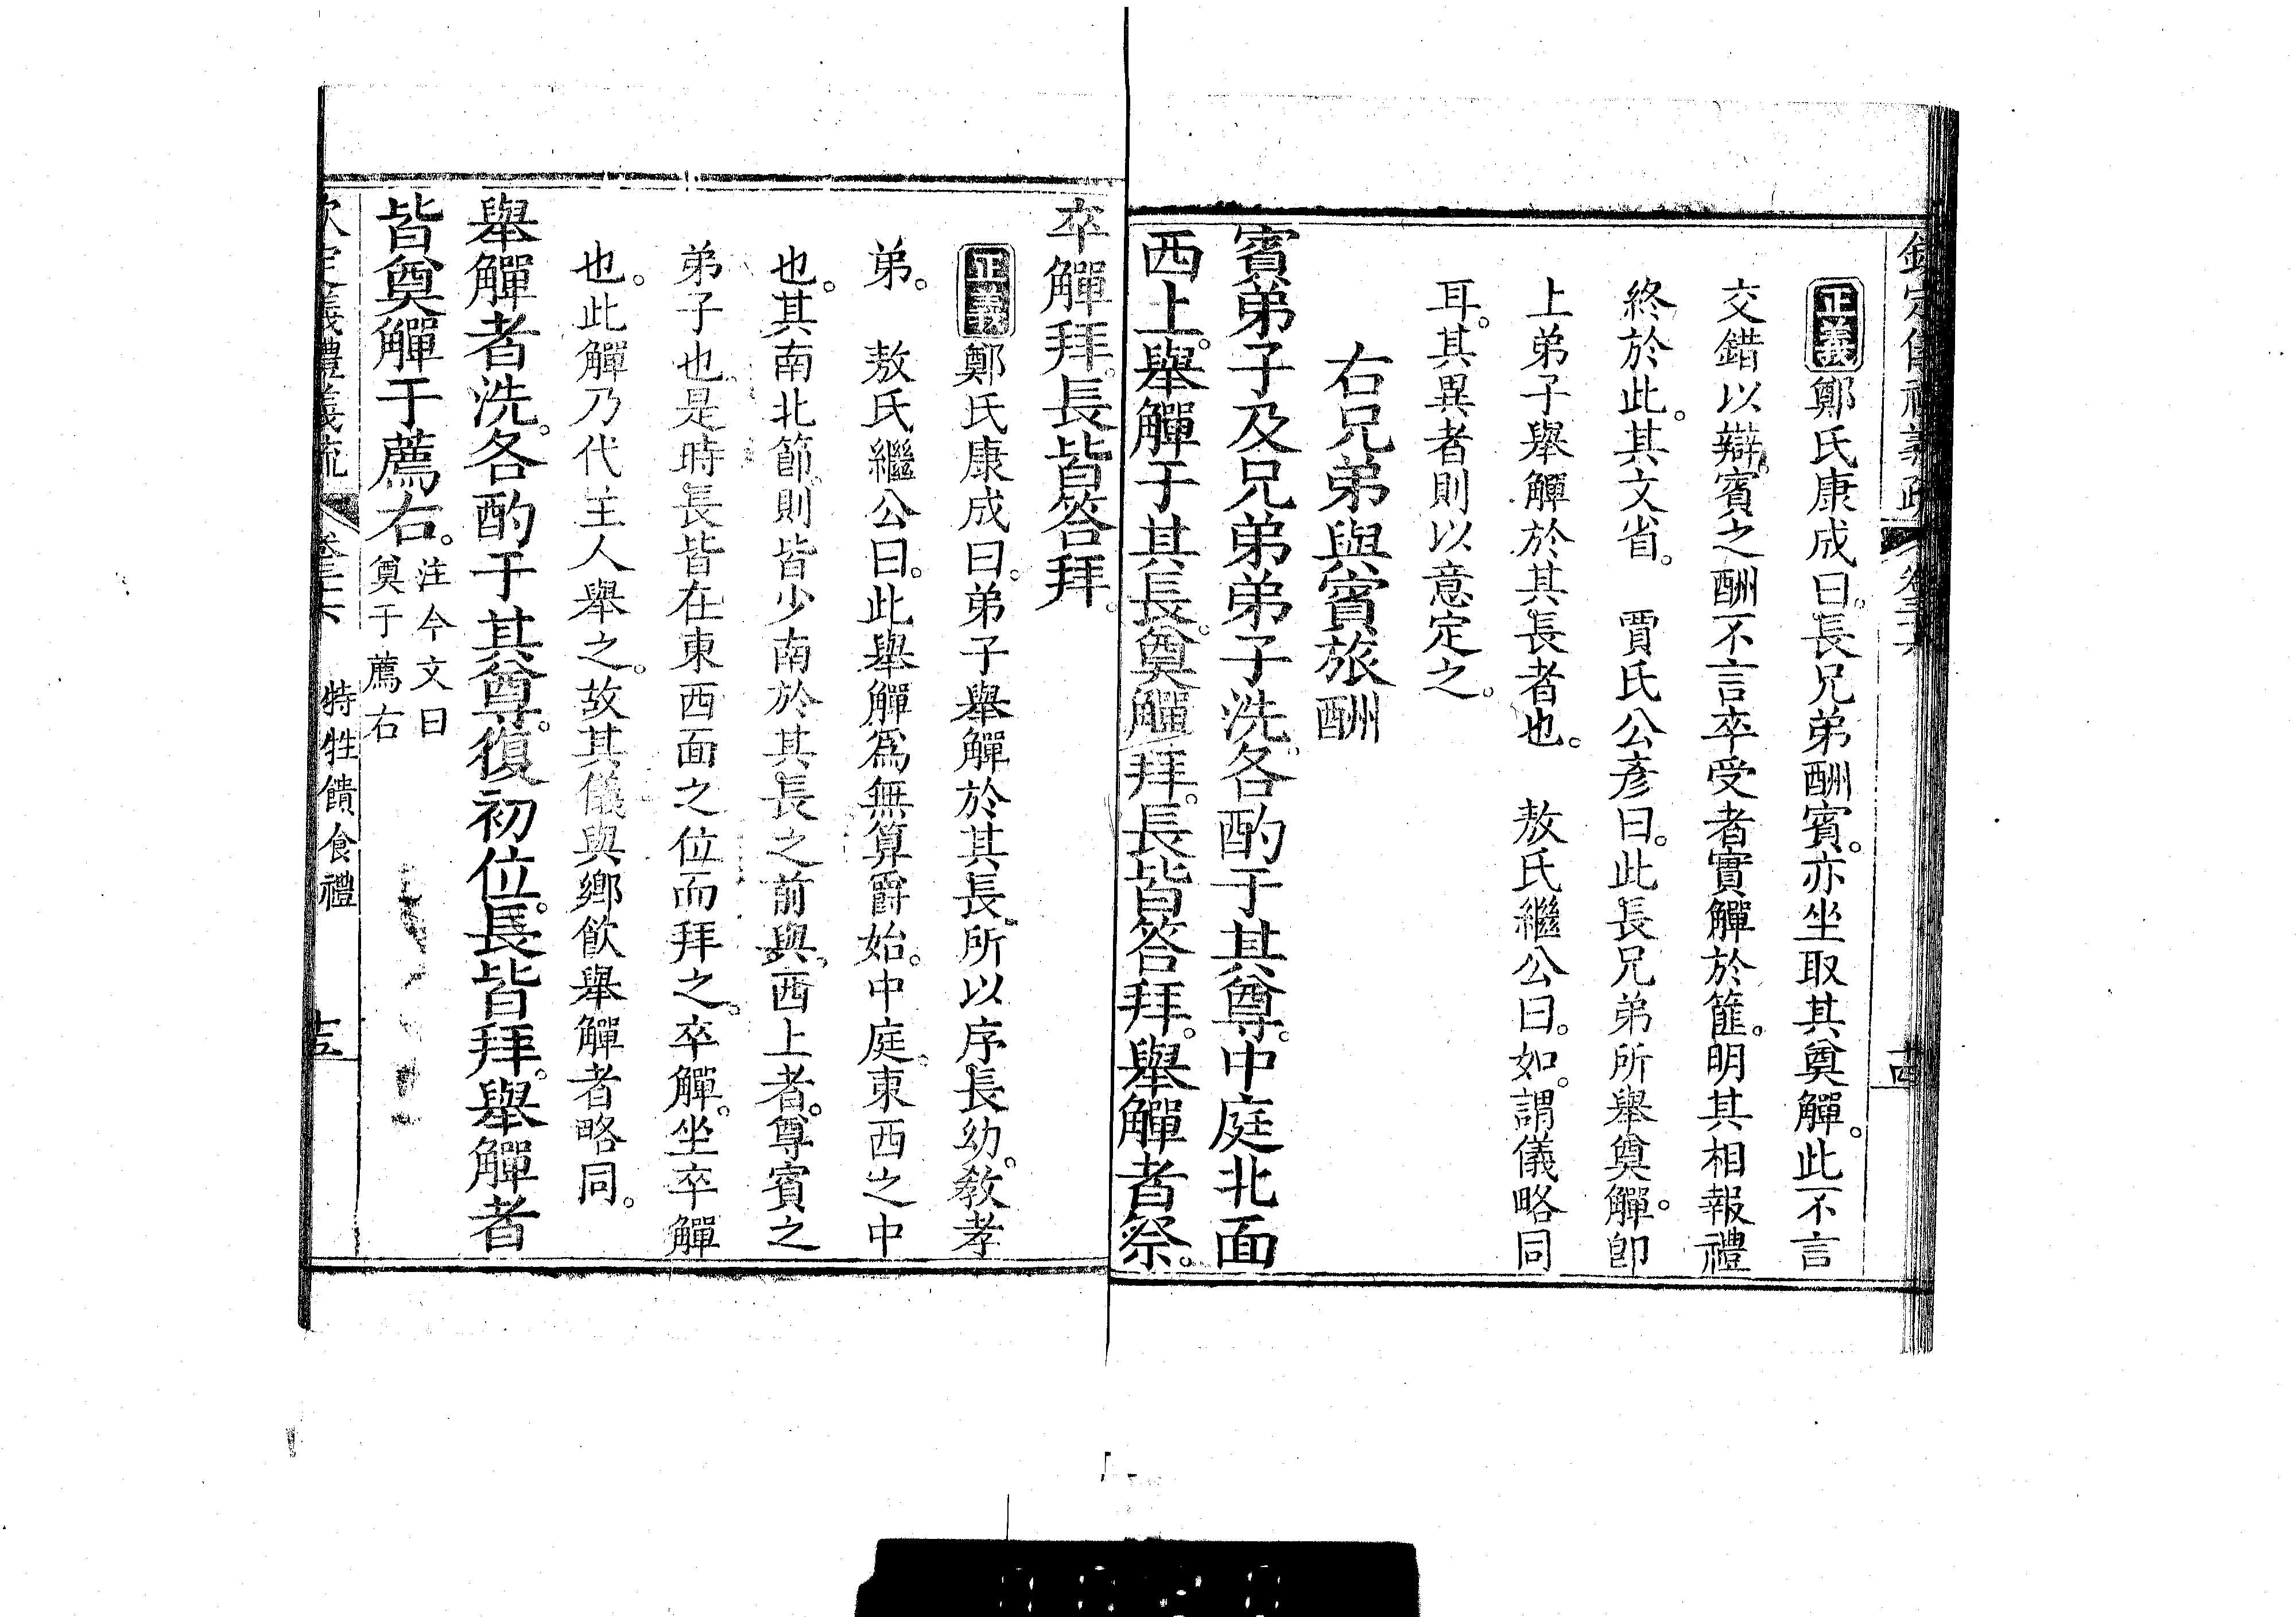 正義鄭氏康成曰。長兄弟酬賓。亦坐取其奠觶。此不言
交錯以辯。賓之酬不言卒受者實觶於篚。明其相報禮
終於此。其文省。 賈氏公彥曰。此長兄弟所舉奠觶。卽
上弟子舉觶於其長者也。 敖氏繼公曰。如。謂儀略同
耳。其異者則以意定之。
右兄弟與賓旅酬
賓弟子及兄弟弟子洗。各酌于其尊。中庭北面
西上。舉觶于其長。奠觶拜。長皆答拜。舉觶者祭。
卒觶拜。長皆答拜。
正義鄭氏康成曰。弟子舉觶於其長。所以序長幼。教孝
弟。 敖氏繼公曰。此舉觶爲無算爵始。中庭。東西之中
也。其南北節。則皆少南於其長之前與。西上者。尊賓之
弟子也。是時長皆在東西面之位而拜之。卒觶。坐卒觶
也。此觶乃代主人舉之。故其儀與鄉飮舉觶者略同。
舉觶者洗。各酌于其尊。復初位。長皆拜。舉觶者
皆奠觶于薦右。注今文曰奠于薦右
欽定儀禮義疏 卷三十六 特牲饋食禮 十五